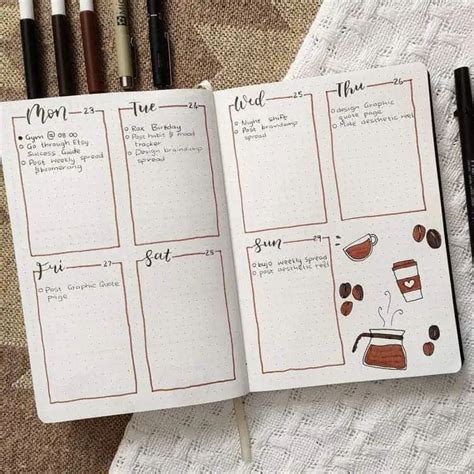 Mon 23
Gym @ 08:00
Go through Etsy
Success Guide
Post weekly spread
& boomerang
Tue 24
Rae Birthday
Post habit & mood
tracker
Design braindump
spread
Wed 25
Night shift
Post braindump
spread
Thu 26
design Graphic
quote page
Make aesthetic reel
Fri 27
Post Graphic Quote
page
Sat 28
Sun 29
bujo weekly spread
post aesthetic reel